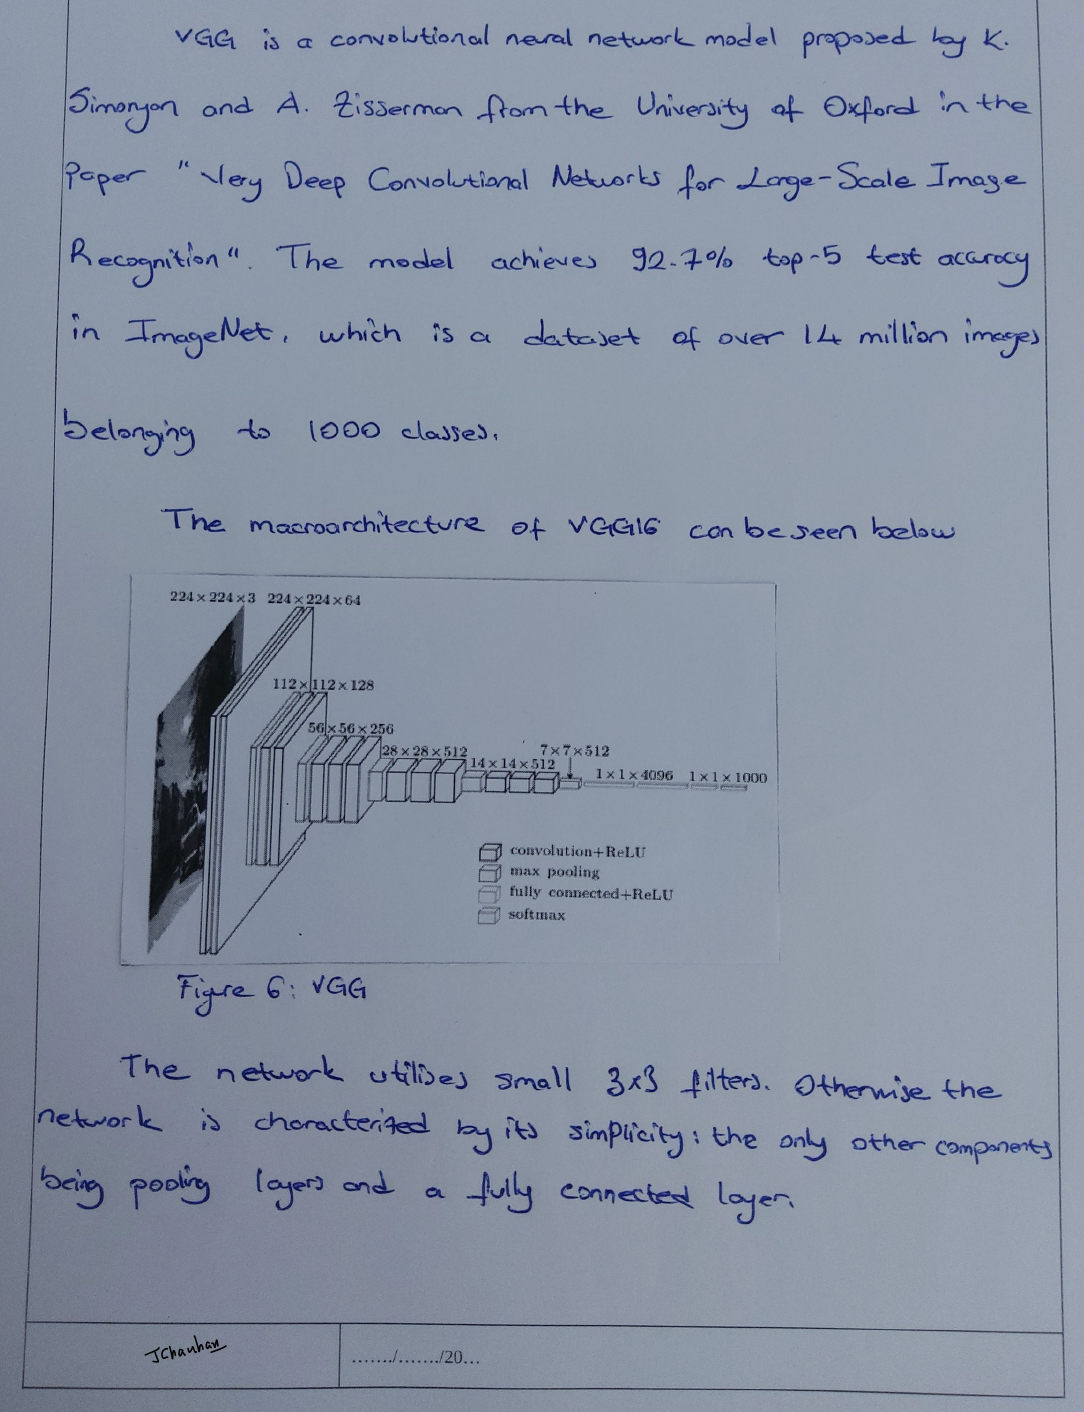 VGG is a convolutional neural network model proposed by K.
Simonyan and A. Zisserman from the University of Oxford in the
Paper "Very Deep Convolutional Networks for Large-Scale Image
Recognition". The model achieves 92.7% top-5 test accuracy
in ImageNet, which is a dataset of over 14 million images
belonging to 1000 classes.
The macroarchitecture of VGG16 can be seen below
224×224×3 224×224×64
112×112×128
56×56×256
28×28×512
7×7×512
14×14×512
1×1×4096 1×1×1000
convolution+ReLU
max pooling
fully connected+ReLU
softmax
Figure 6: VGG
The network utilises small 3x3 filters. Otherwise the
network is characterized by its simplicity: the only other components
being pooling layers and a fully connected layer.
JChauhan
......./......./20...